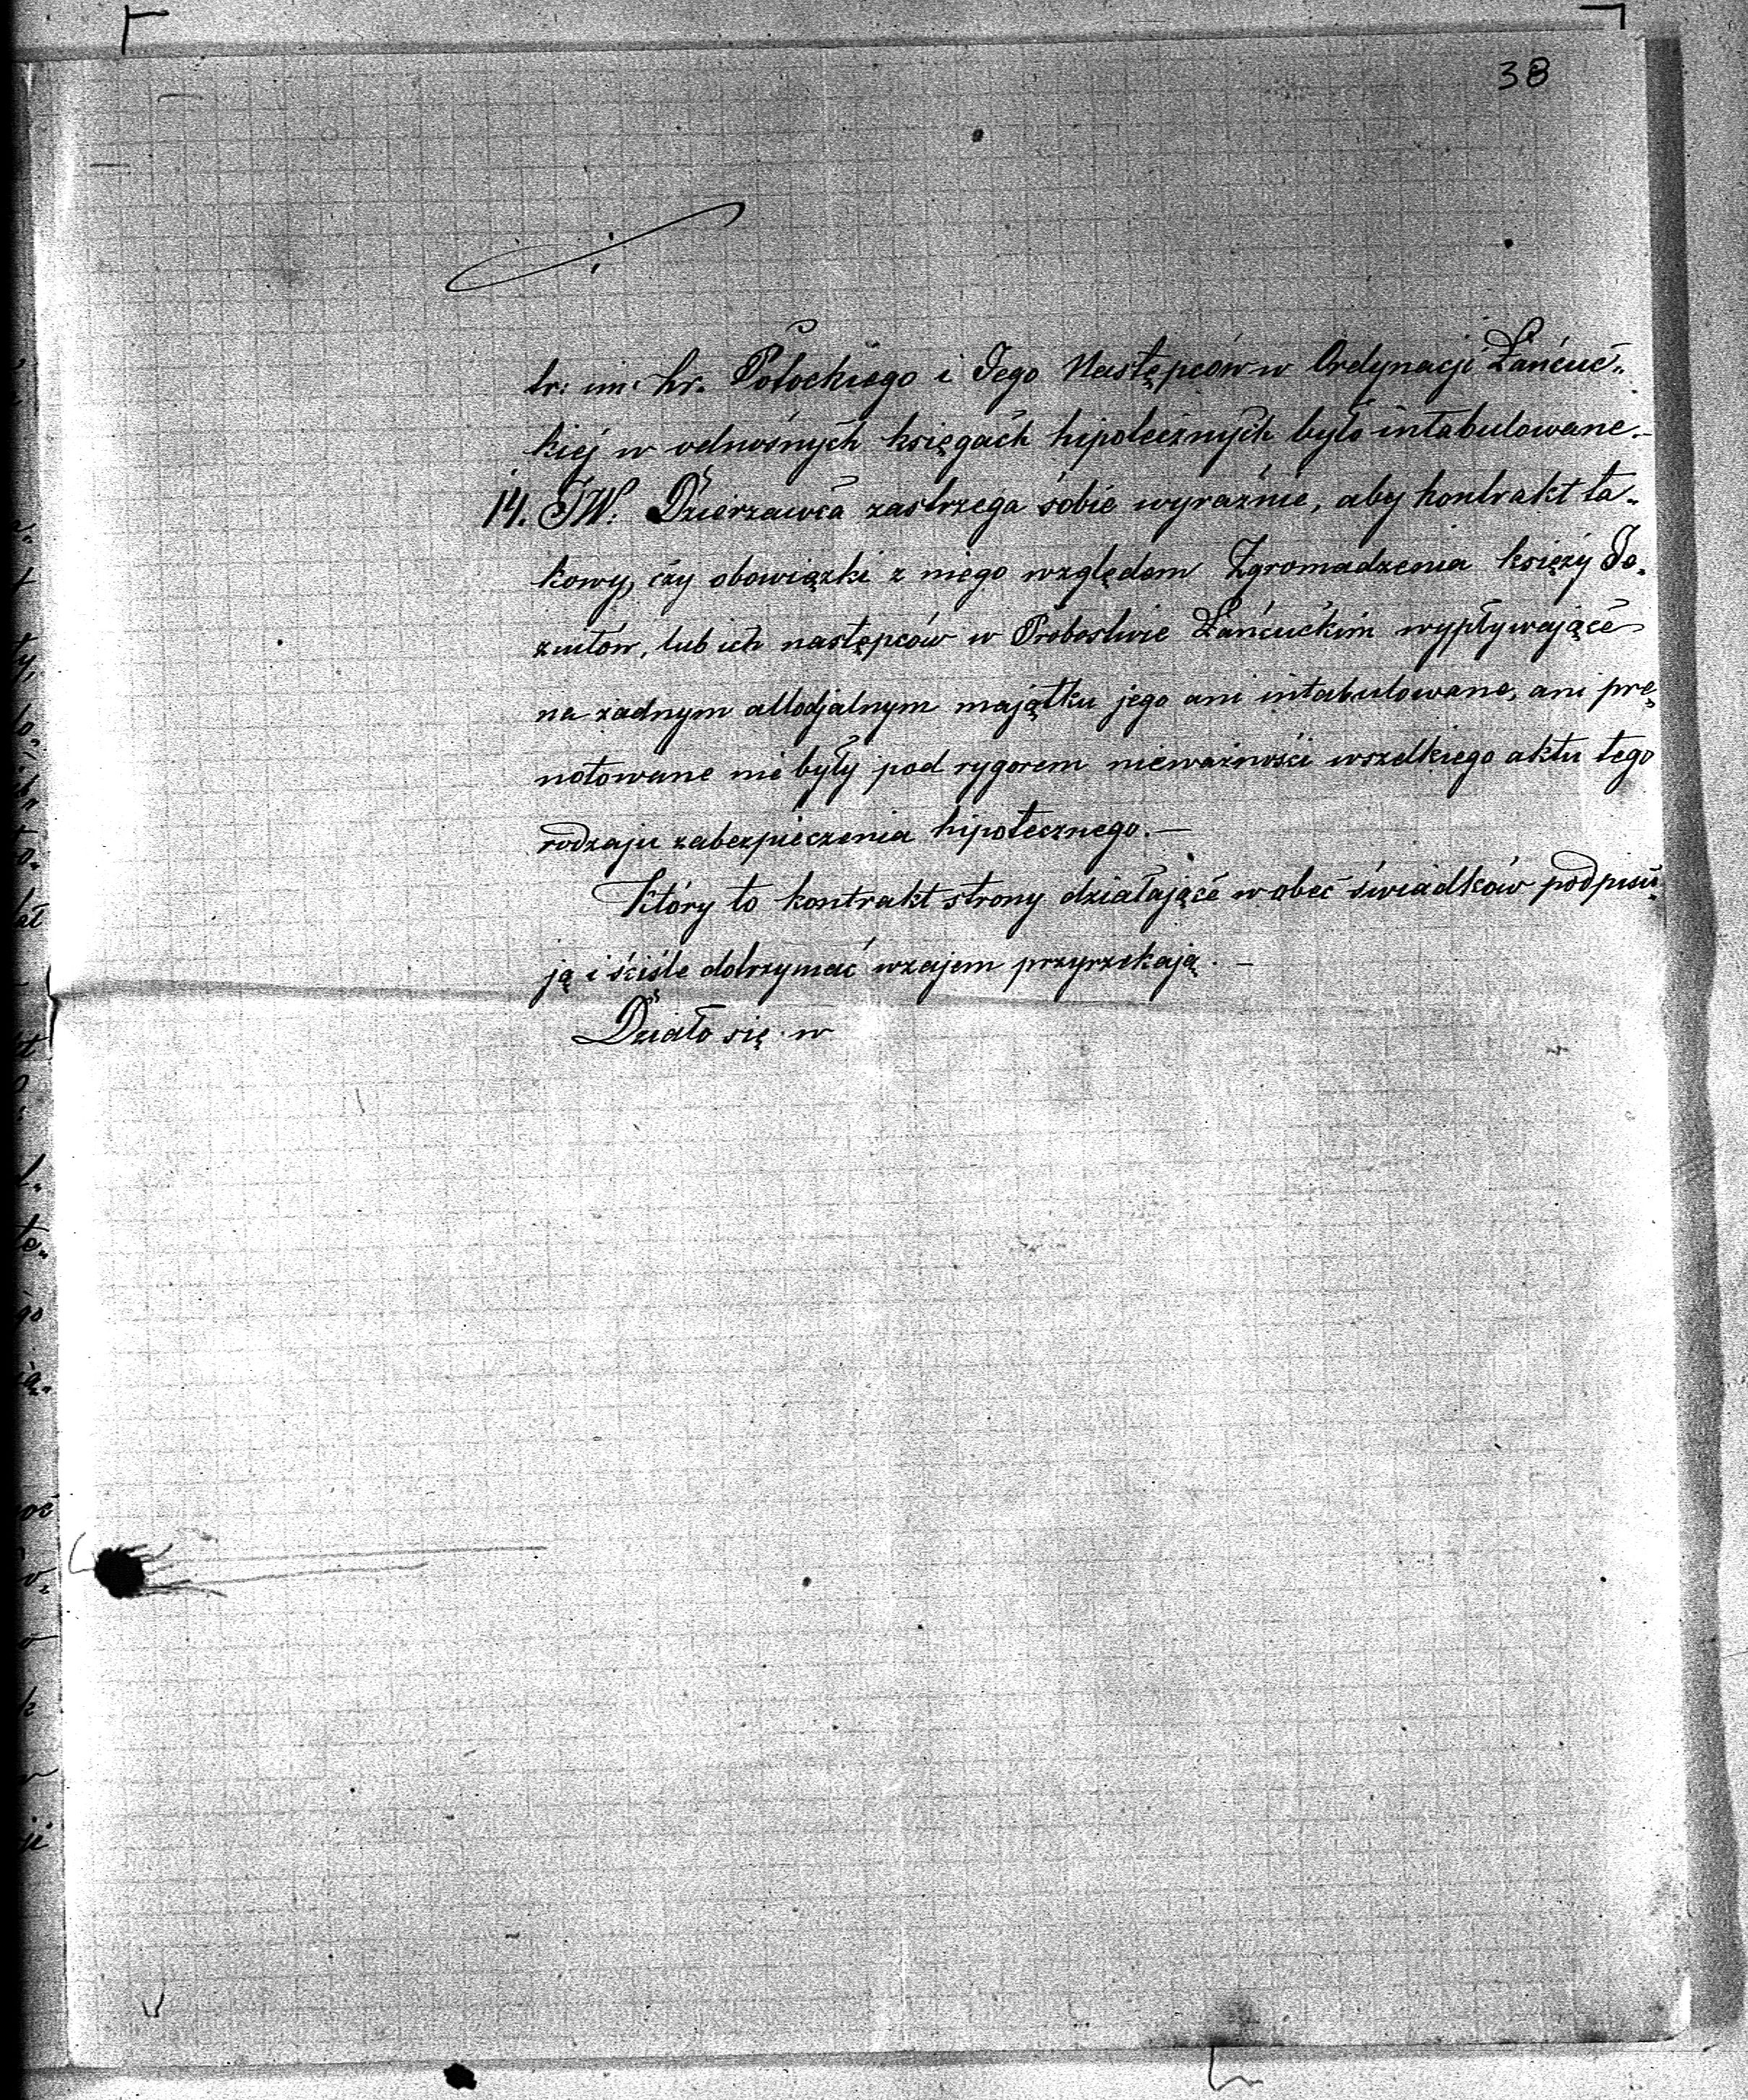 38
tr: im: hr. Potockiego i Jego Następców w Ordynacji Łańcuc„
kiej w odnośnych księgach hipotecznych było intabulowane.–
14. JW. Dzierzawca zastrzega sobie wyraźnie, aby kontrakt ta„
kowy, czy obowiązki z niego względem Zgromadzenia księży Je„
zuitów, lub ich następców w Probostwie Łańcuckim wypływające
na zadnym allodjalnym majątku jego ani intabulowane, ani pre„
notowane nie były pod rygorem nieważności wszelkiego aktu tego
rodzaju zabezpieczenia hipotecznego.—
Który to kontrakt strony działające w obec świadków podpisu„
ją i ściśle dotrzymać wzajem przyrzekają. –
Działo się w